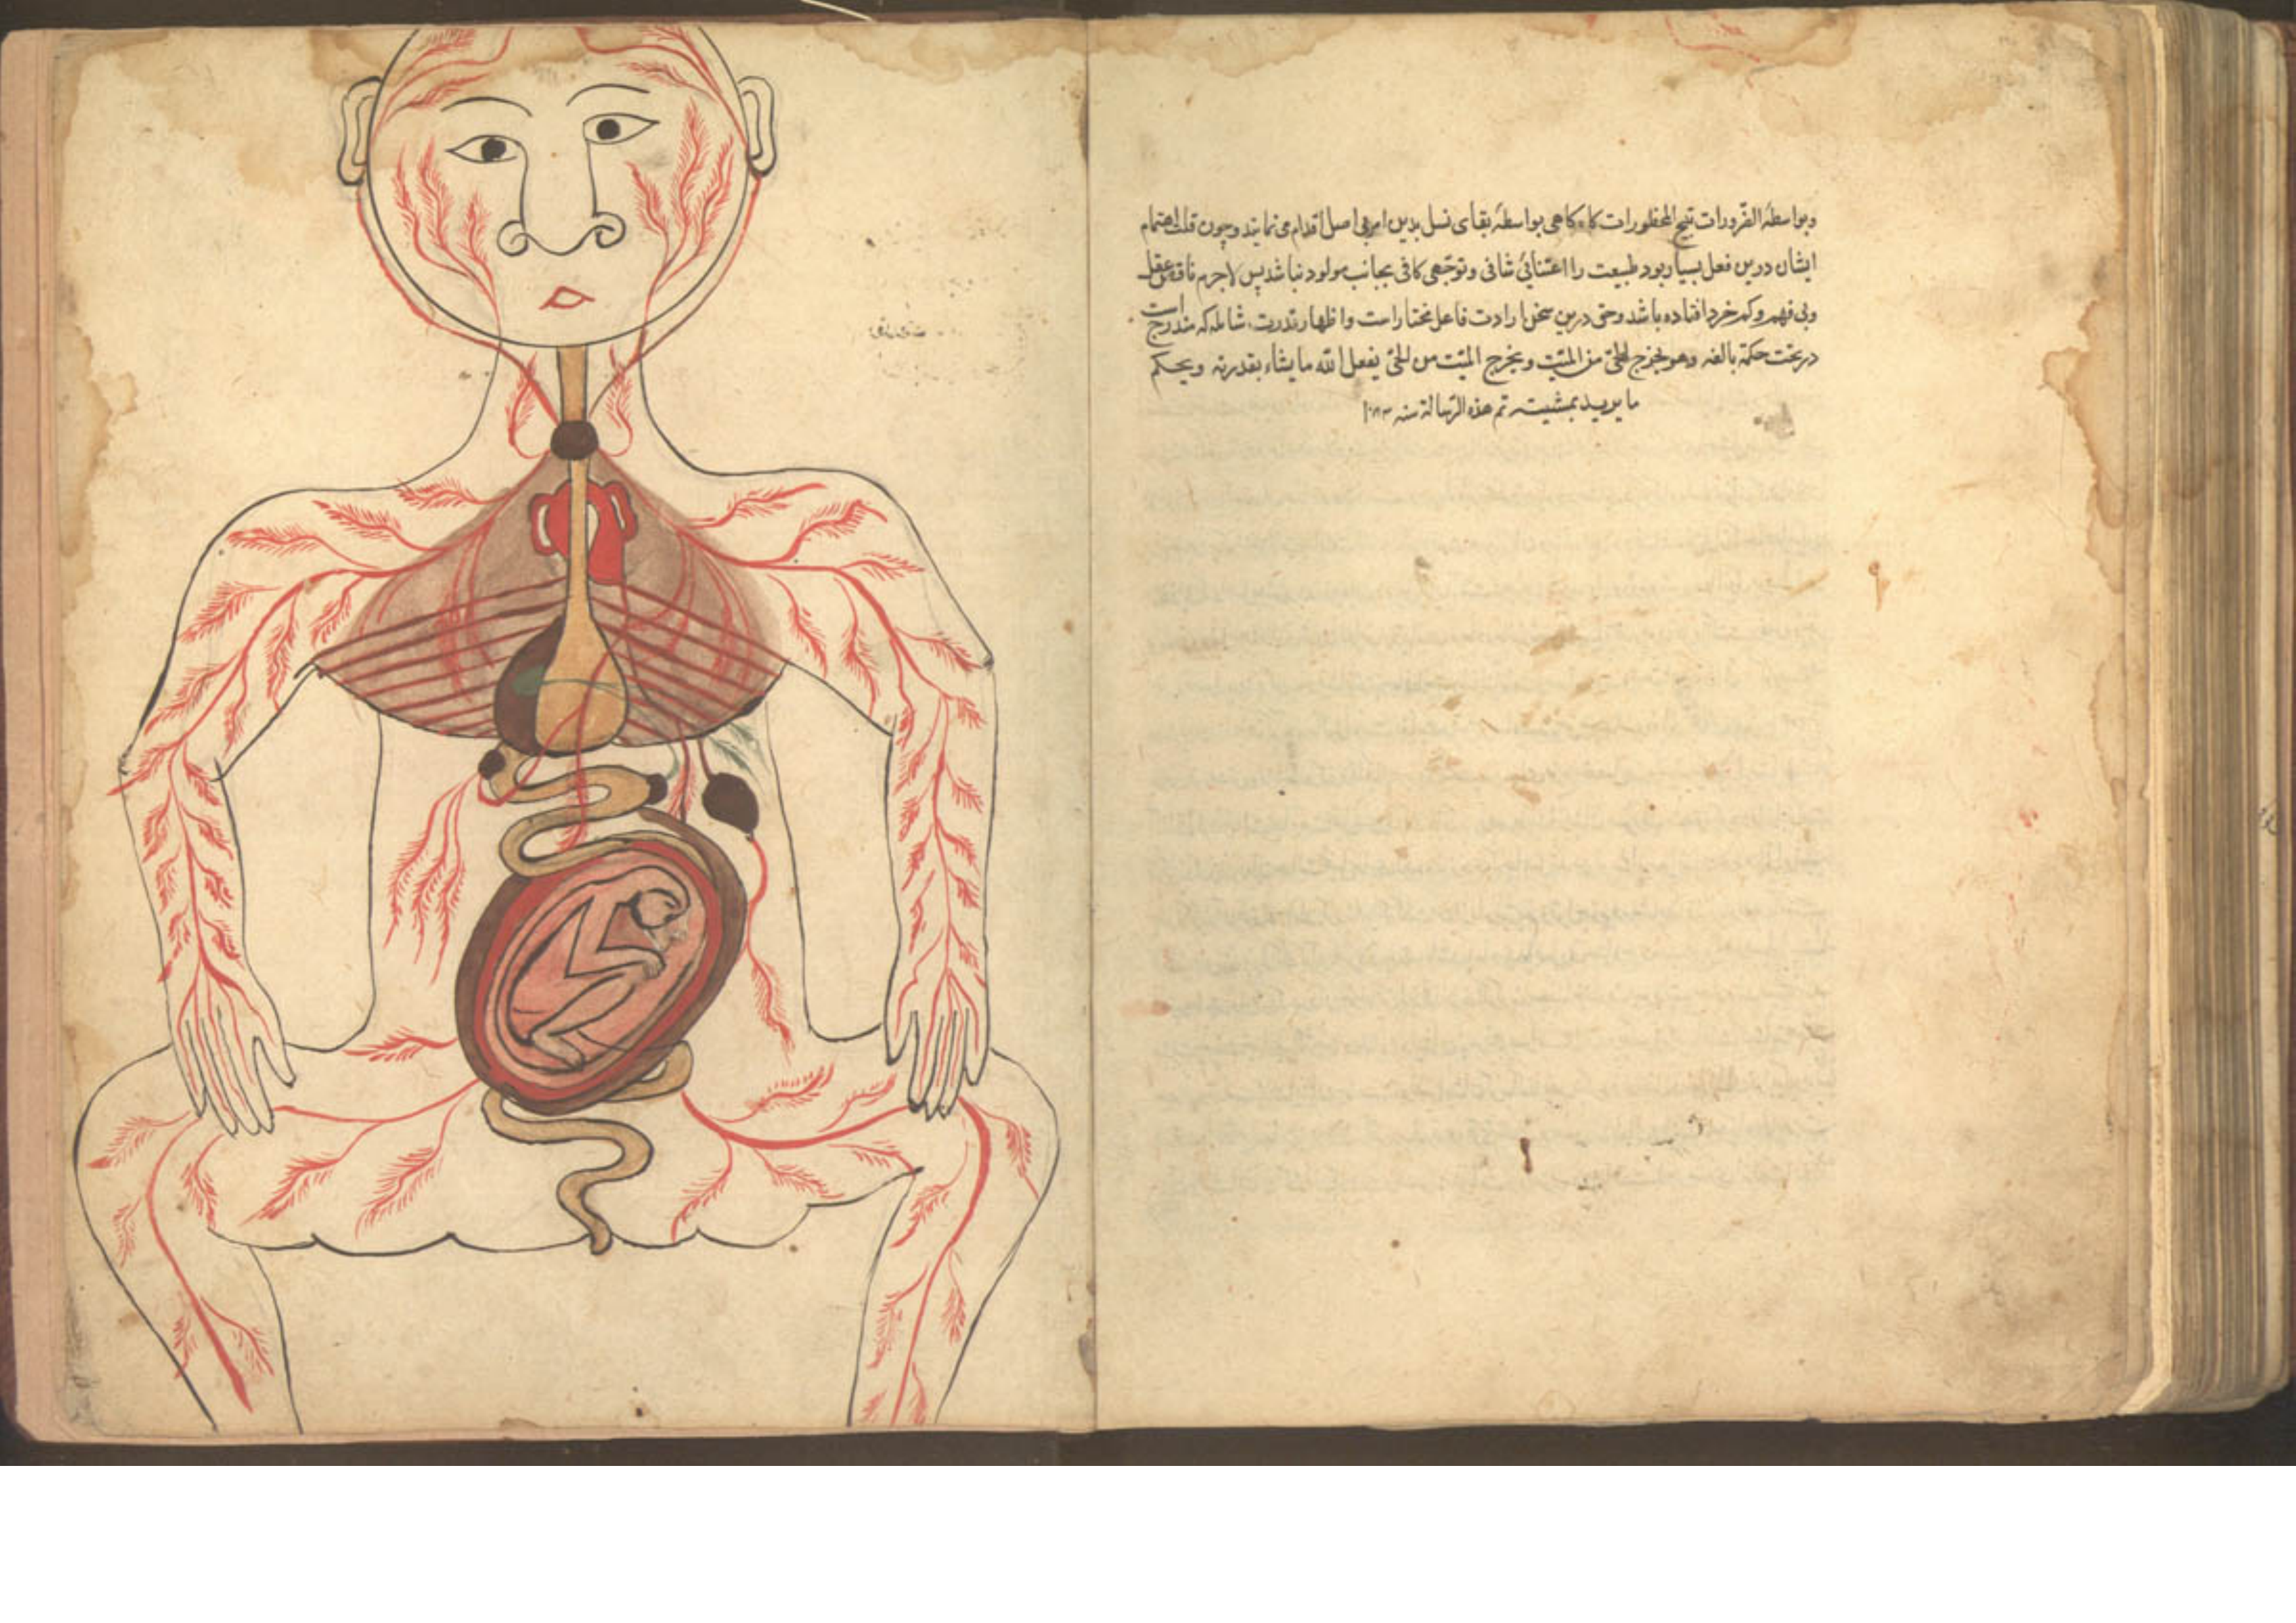 وبواسطهٔ الضّرورات تبیح المحظورات کاه کاهی بواسطهٔ بقای نسل بدین امر بی اصل اقدام می نمایند و چون قلت اهتمام
ایشان درین فعل بسیار بود طبیعت را اعتنائی شافی و توجّهی کافی بجانب مولود نباشد پس لاجرم ناقص عقل
وبی فهم وکم خرد افتاده باشد وحق درین سخن ارادت فاعل مختار است واظهار قدرت شامله که مندرج است
در تحت حکمة بالغه وهو یخرج الحیّ من المیّت ویخرج المیّت من الحیّ یفعل الله ما یشاء بقدرته ویحکم
ما یرید بمشیته تم هذه الرّسالة سنه